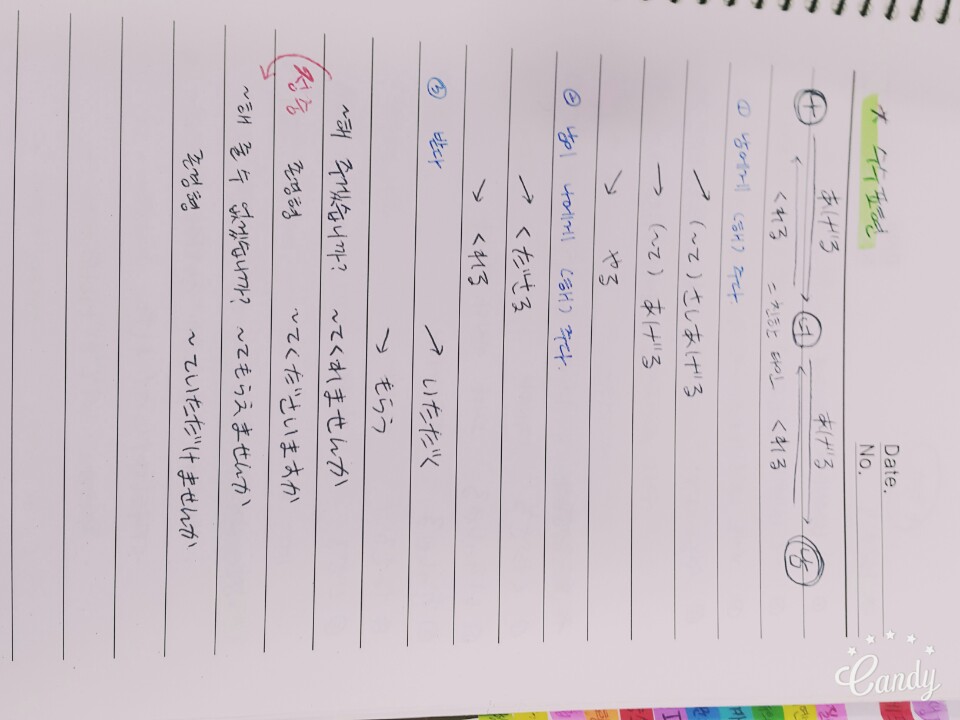 Date.
No.
* 수수표현
あげる あげる
나 너 남
くれる =친한 타인 くれる
① 남에게 (해) 주다.
↗ (~て) さしあげる
→ (~て) あげる
↘ やる
② 남이 나에게 (해) 주다.
↗ くださる
↘ くれる
③ 받다 ↗ いただく
↘ もらう
~해 주겠습니까? ~てくれませんか
정중 존경형 ~てくださいますか
~해 줄 수 없겠습니까? ~てもらえませんか
존경형 ~ていただけませんか
Candy